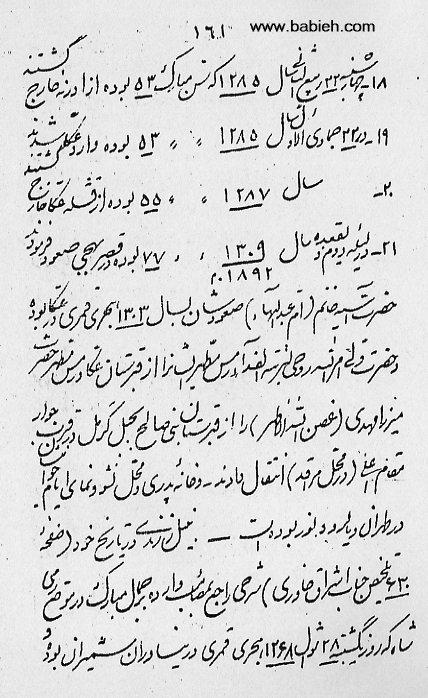 www.babieh.com
۱۶۱
۱۸- چهارشنبه ۲۲ ربیع الثانی سال ۱۲۸۵ که سن مبارک ۵۳ بوده از ادرنه خارج گشتند
۱۹- در ۲۲ جمادی الاول سال ۱۲۸۵ ״ ״ ۵۳ بوده وارد عکا شدند
۲۰- سال ۱۲۸۷ ״ ״ ۵۵ بوده از قشله عکا خارج گشتند
۲۱- در لیله دوم ذیقعده سال ۱۳۰۹ ״ ״ ۷۷ بوده در قصر بهجی صعود فرمودند
۱۸۹۲ م.
حضرت آسیه خانم (ام عبدالبهاء) صعودشان بسال ۱۳۰۳ هجری قمری در عکا بوده
و حضرت ولی امرالله روحی لتربته الفداء رمس مطهر ایشانرا از قبرستان عکا و رمس مطهر حضرت
میرزا مهدی (غصن الله الاطهر) را از قبرستان نبی صالح بجبل کرمل در قرب جوار
مقام اعلی (در محل مراقد) انتقال دادند - و خانه پدری و محل نشو و نمای ایام
در طهران دیار و نور بوده است — نبیل زرندی در تاریخ خود (صفحه
۶۳۰ تلخیص جناب اشراق خاوری) شرحی راجع بمصائب وارده بر جمال مبارک در موقع رمی
شاه که روز یکشنبه ۲۸ شوال ۱۲۶۸ هجری قمری در نیاوران شمیران بوده و